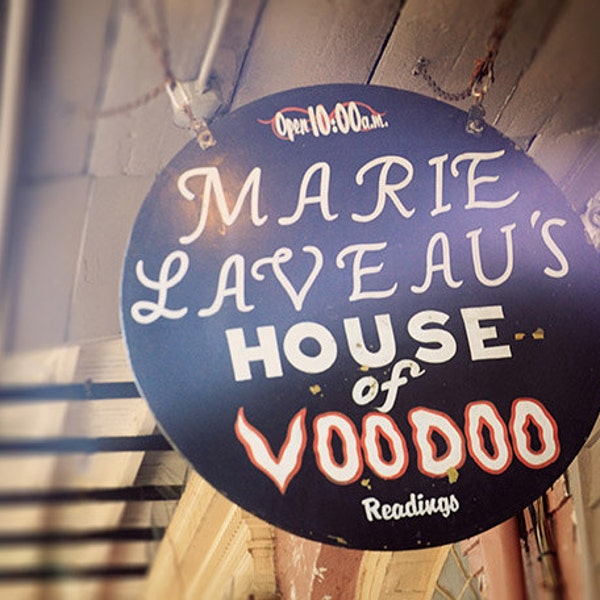 Open 10:00 a.m.
MARIE
LAVEAU'S
HOUSE
of
VOODOO
Readings